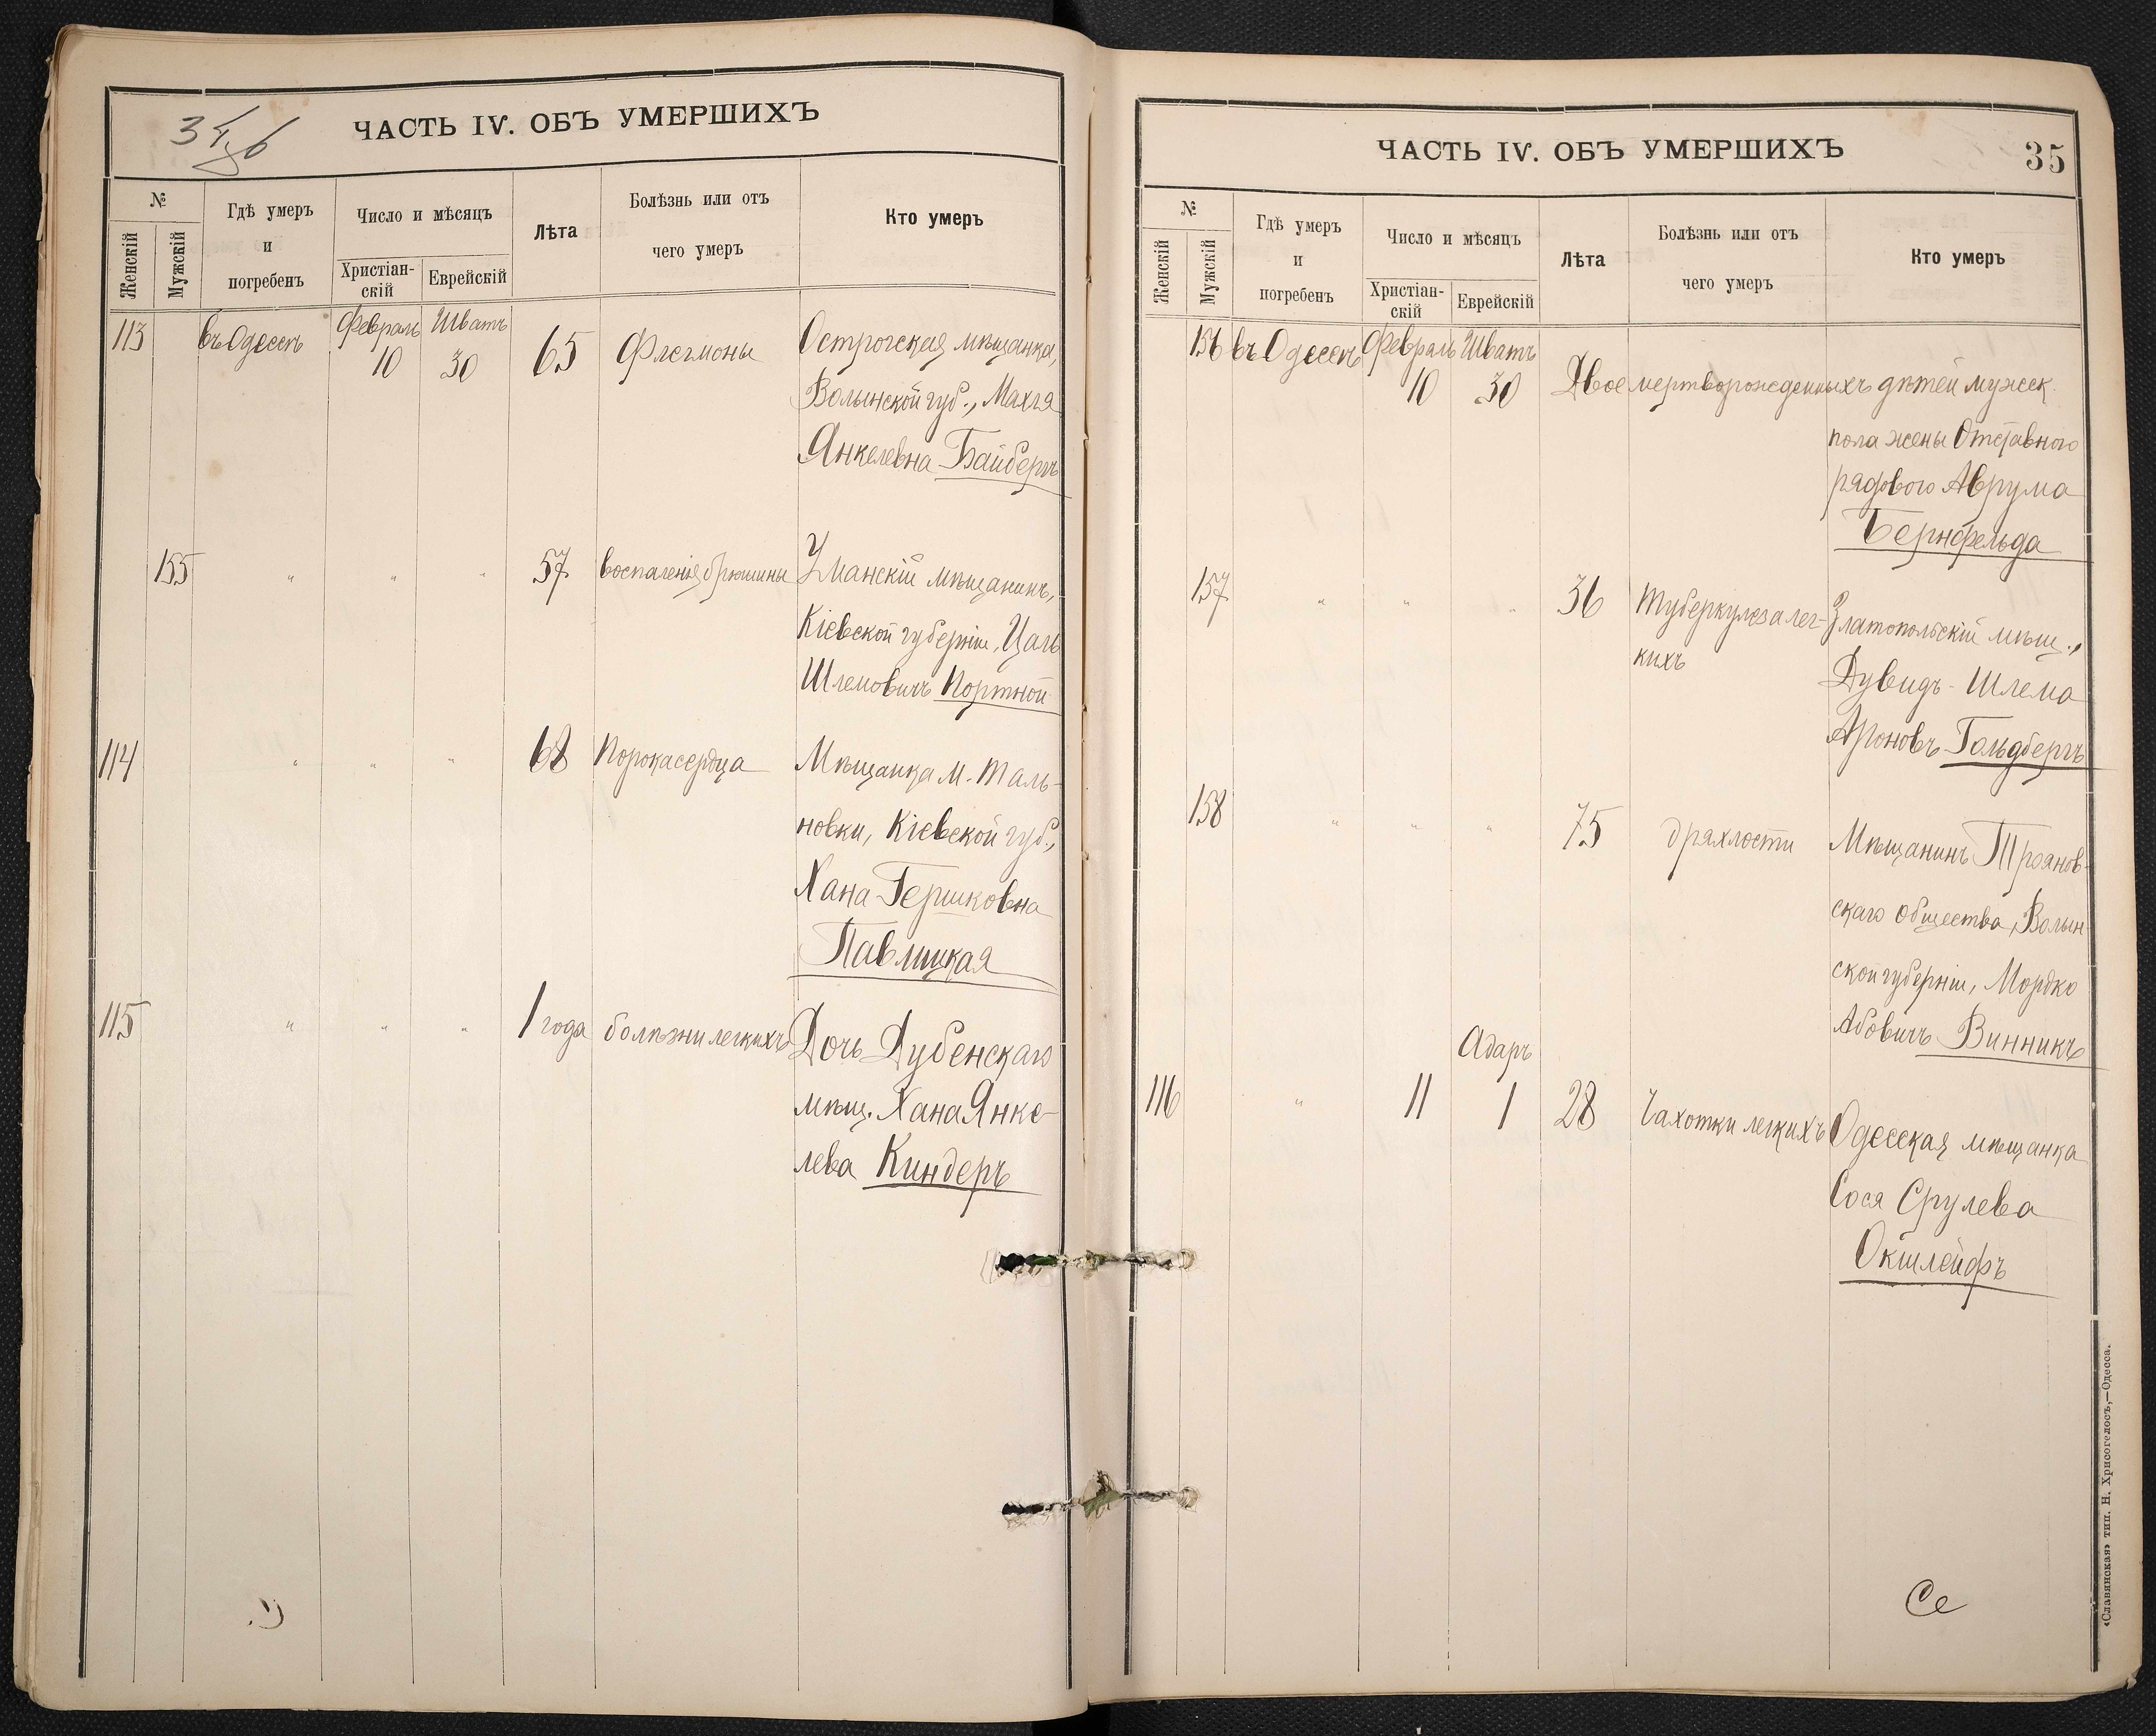 34 об
ЧАСТЬ IV. ОБЪ УМЕРШИХЪ
№
Женскій
Мужскій
Гдѣ умеръ
и
погребенъ
Число и мѣсяцъ
Христіан-
скій
Еврейскій
Лѣта
Болѣзнь или отъ
чего умеръ
Кто умеръ
113 въ Одессѣ Февраль Шватъ
10 30 65 Флегмоны Острогская мѣщанка,
Волынской губ., Махля
Янкелевна Байбергъ
155 " " " 57 воспаленія брюшины Уманскій мѣщанинъ,
Кіевской губерніи, Цаль
Шлемовичъ Портной
114 " " " 68 Порока сердца Мѣщанка м. Таль-
новки, Кіевской губ.,
Хана Гершковна
Павлицкая
115 " " " 1 года болѣзни легкихъ Дочь Дубенскаго
мѣщ. Хана Янке-
лева Киндеръ
ЧАСТЬ IV. ОБЪ УМЕРШИХЪ
35
№
Женскій
Мужскій
Гдѣ умеръ
и
погребенъ
Число и мѣсяцъ
Христіан-
скій
Еврейскій
Лѣта
Болѣзнь или отъ
чего умеръ
Кто умеръ
156 въ Одессѣ Февраль Шватъ
10 30 Двое мертворожденныхъ дѣтей мужск.
пола жены Отставного
рядового Аврума
Бернфельда
157 " " " 36 Туберкулеза лег- Златопольскій мѣщ.,
кихъ
Дувидъ-Шлема
Ароновъ Гольдбергъ
158 " " " 75 дряхлости Мѣщанинъ Троянов-
скаго общества, Волын-
ской губерніи, Мордко
Абовичъ Винникъ
Адаръ
116 " 11 1 28 Чахотки легкихъ Одесская мѣщанка
Сося Срулева
Окшлейфъ
Се
«Славянская» тип. Н. Хрисогелосъ,—Одесса.